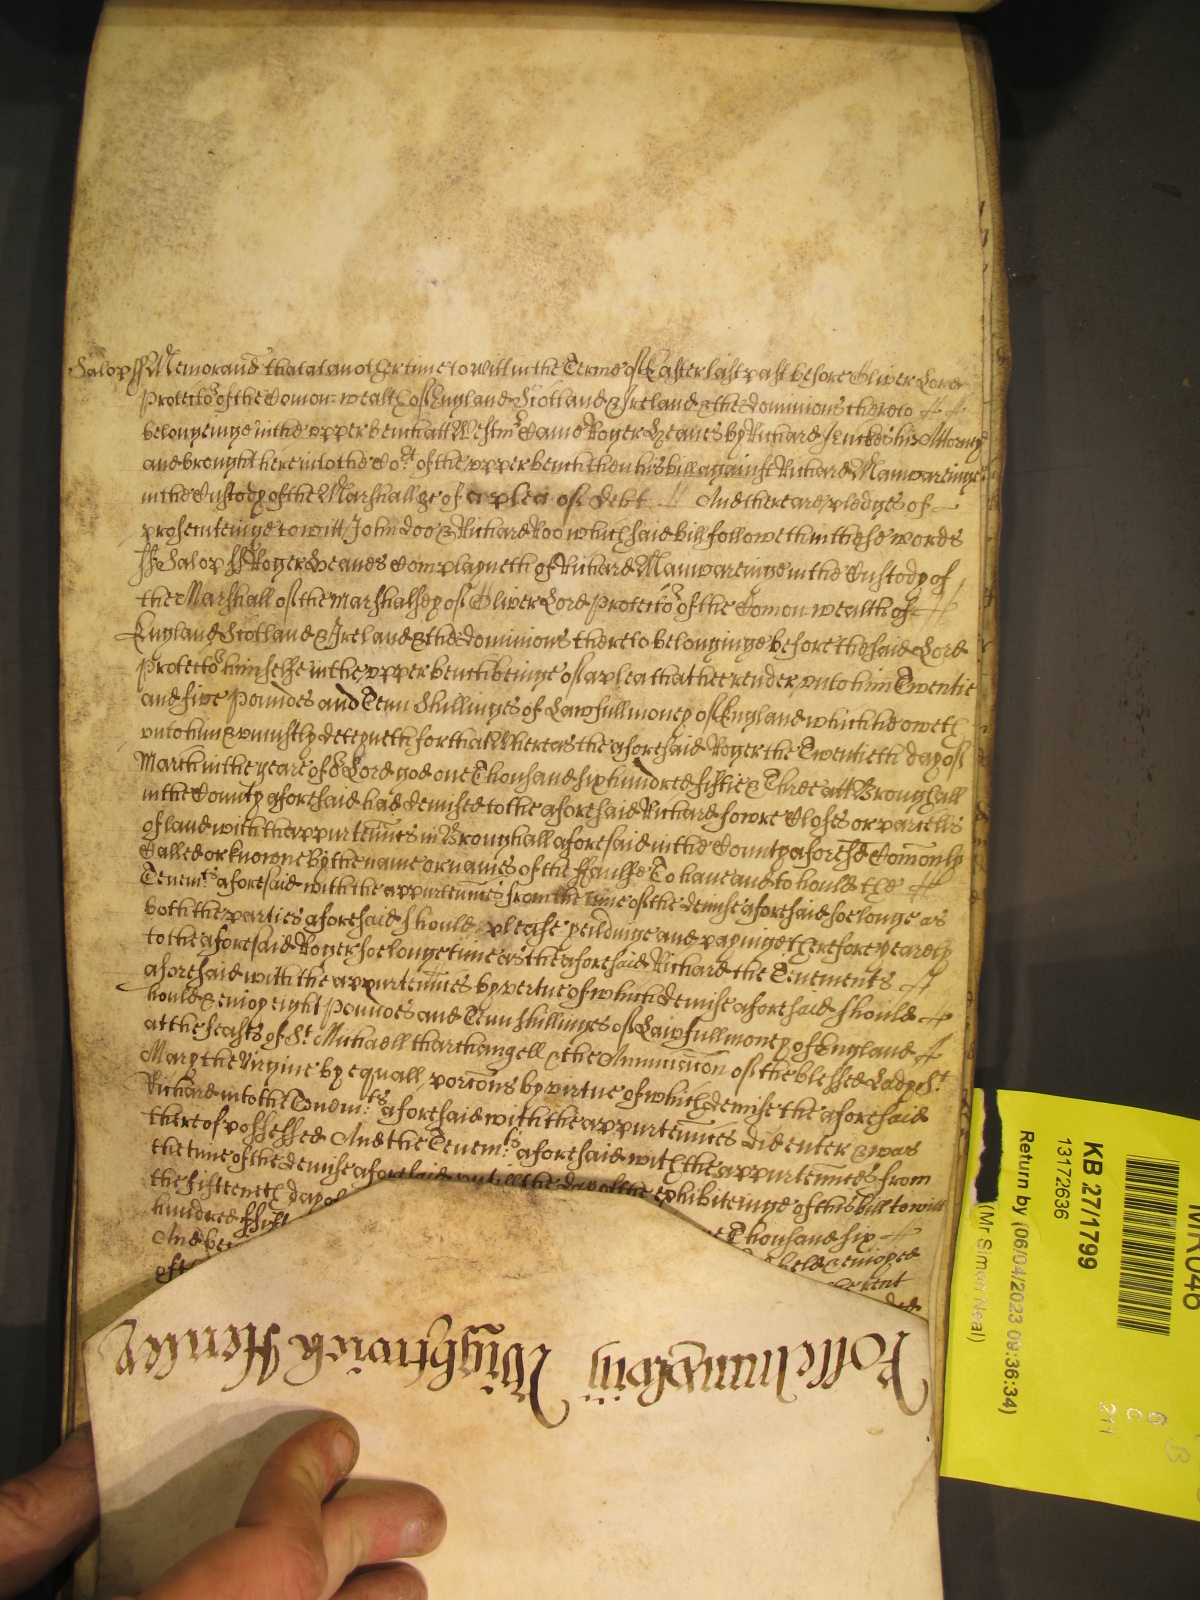 Salop ss Memorand that at another time to witt in the Terme of Easter last past before Oliver Lord
Protector of the Comon wealth of England Scotland & Ireland & the dominions thereto
belonginge in the vpper bench att Westmr Came Roger Yeanes by Richard Jenckes his Attorny
and brought here into the Cort of the vpper bench then his bill against Richard Manwareinge
in the Custody of the Marshall &c of a plea of debt And there are pledges of
prosecuteinge to witt John Doo & Richard Roo which said bill followeth in these words
ss Salop ss Roger Yeanes Complayneth of Richard Manwareinge in the Custody of
the Marshall of the marshalsey of Oliver Lord Protector of the Comon wealth of
England Scotland & Ireland & the dominions thereto belonginge before the said Lord
Protector himselfe in the vpper bench beinge of a plea that hee render vnto him Twentie
and five Poundes and Tenn Shillinges of Lawfull money of England which he oweth
vnto him & vniustly deteyneth for that Whereas the aforesaid Roger the Twentieth day of
March in the yeare of or Lord god one Thousand six hundred fiftie & Three att Broughall
in the County aforesaid had demised to the aforesaid Richard fowre Closes or parcells
of land with the appurtennces in Broughall aforesaid in the County aforesd Comonly
Called or knowne by the name or names of the To have and to hould the
Tenemts aforesaid with the appurtennces from the time of the demise aforesaid soe longe as
both the parties aforesaid should please yeildinge and payinge therefore yearely
to the aforesaid Roger soe longe time as the aforesaid Richard the Tenements
aforesaid with the appurtennces by vertue of which demise aforesaid should
hould & enioy eight Poundes and Tenn shillinges of Lawfull money of England
at the feasts of St Michaell tharchangell & the Annunciacon of the blessed Lady St
Mary the Virgine by equall porcons by virtue of which demise the aforesaid
Richard into the Tenemts aforesaid with the appurtennces did enter & was
thereof possessed And the Tenemts aforesaid with the appurtennces from
the time of the demise aforesaid untill the day of the exhibiteinge of this bill to witt
the fifteeneth day of
hundred fifty Thousand six
And held & enioyed
of the rent
Wightwick Henley
KB 27/1799
13172636
Return by (06/04/2023 09:36:34)
(Mr Simon Neal)